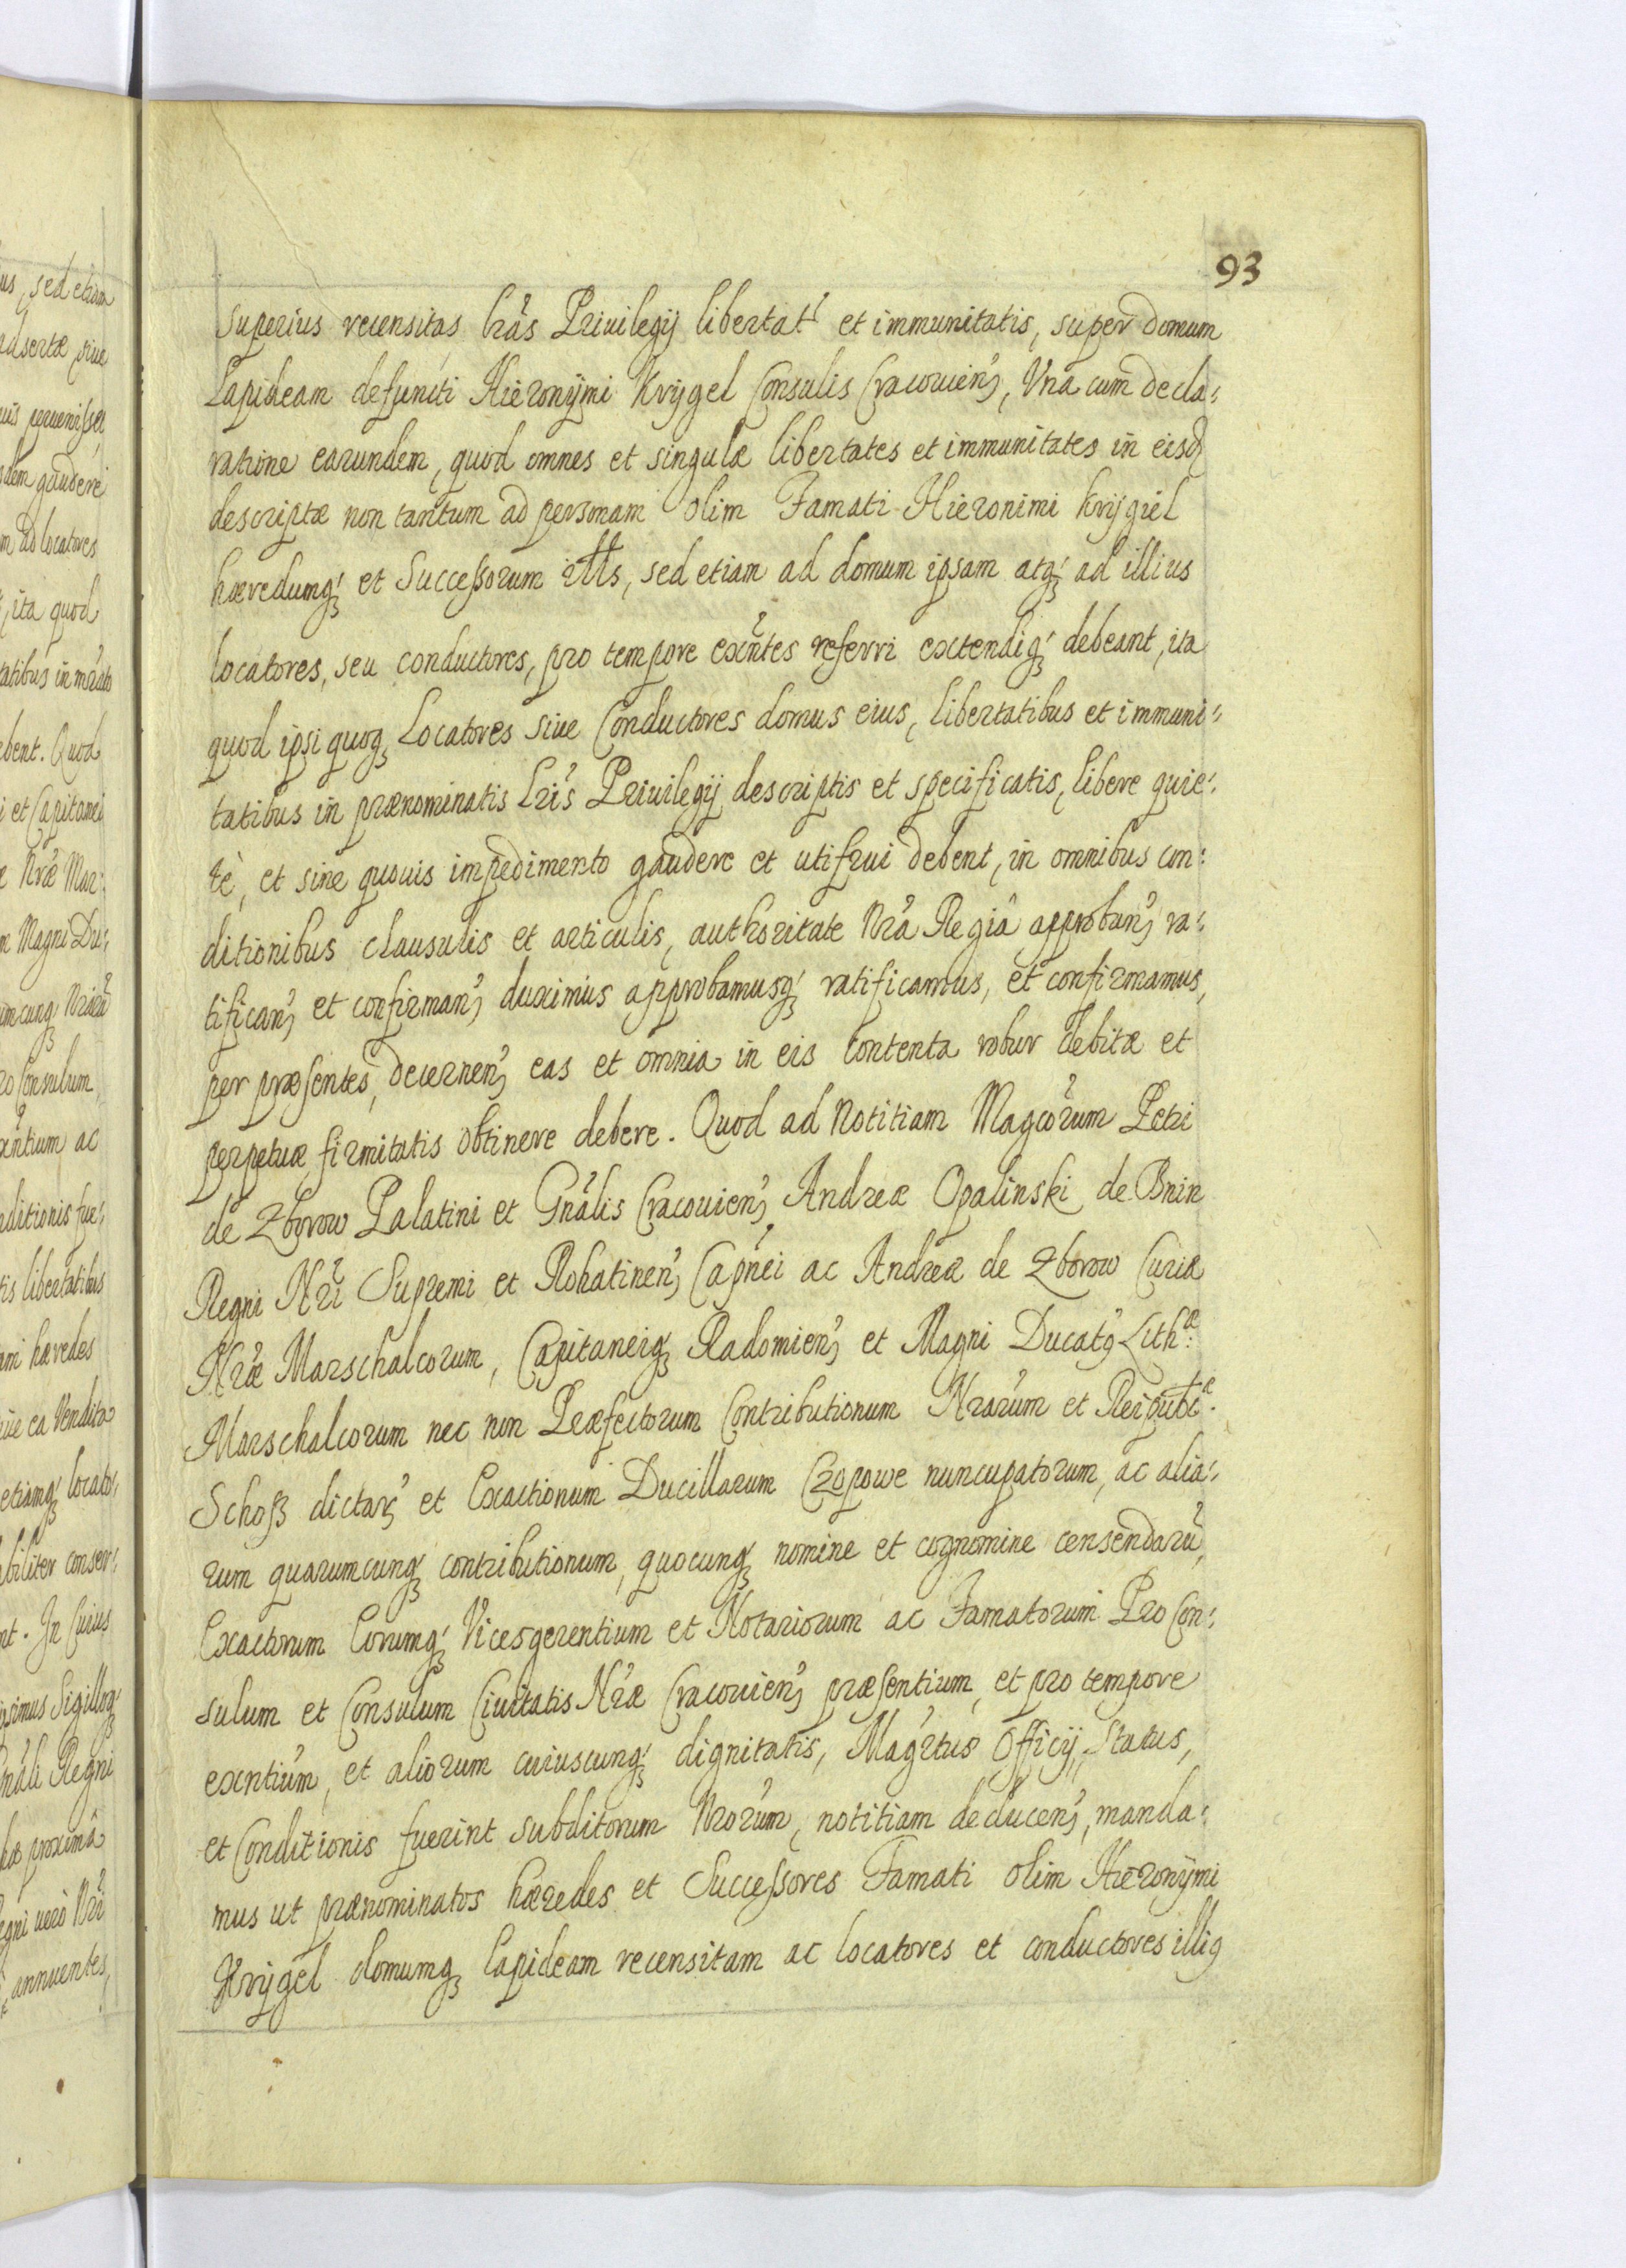 93
superius recensitas lr̃as Priuilegij libertat' et immunitatis, super domum
Lapideam defuncti Hieronÿmi Krÿgel Consulis Cracouien̾, Vna cum decla:
ratione earundem, quod omnes et singulæ libertates et immunitates in eisd̾
descriptæ non tantum ad personam olim Famati Hieronimi Krÿgiel
hæredumq́ʒ et Successorum illi9s, sed etiam ad domum ipsam atq́ʒ ad illius
locatores, seu conductores, pro tempore exñtes referri extendiq́ʒ debeant, ita
quod ipsi quoqʒ Locatores siue Conductores domus eius, libertatibus et immuni:
tatibus in prænominatis Lr̃is Priuilegij descriptis et specificatis, libere quie:
tè, et sine quouis impedimento gaudere et utifrui debent, in omnibus con:
ditionibus clausulis et articulis, authoritate Nr̃a Regiâ approban̾ ra:
tifican̾ et confirman̾ duximus approbamusq́ʒ ratificamus, et confirmamus,
per præsentes, decernen̾ eas et omnia in eis contenta robur debitæ et
perpetuæ firmitatis obtinere debere. Quod ad Notitiam Magcõrum Petri
de Zborow Palatini et Gñalis Cracouien̾, Andreæ Opalinski de Bnin
Regni Nr̃i Supremi et Rohatinen̾ Capñei ac Andreæ de Zborow Curiæ
Nr̃æ Marschalcorum, Capitaneiq́ʒ Radomien̾ et Magni Ducat9 Lith:æ
Marschalcorum nec non Præfectorum Contributionum Nrãrum et Reipub:cæ
Schoß dictar̾ et Exactionum Ducillarum Czopowe nuncupatorum, ac alia:
rum quarumcunq́ʒ contributionum, quocunq́ʒ nomine et cognomine censendarũ,
Exactorum Eorumq́ʒ Vicesgerentium et Notariorum ac Famatorum Pro Con:
sulum et Consulum Ciuitatis Nr̃æ Cracouien̾ præsentium, et pro tempore
exñtium, et aliorum cuiuscunq́ʒ dignitatis, Magr̃tus Officij, Status,
et Conditionis fuerint subditorum Nrõrum, notitiam deducen̾, manda:
mus ut prænominatos hæredes et Successores Famati olim Hieronÿmi
Krÿgel domumqʒ Lapideam recensitam ac locatores et conductores illi9